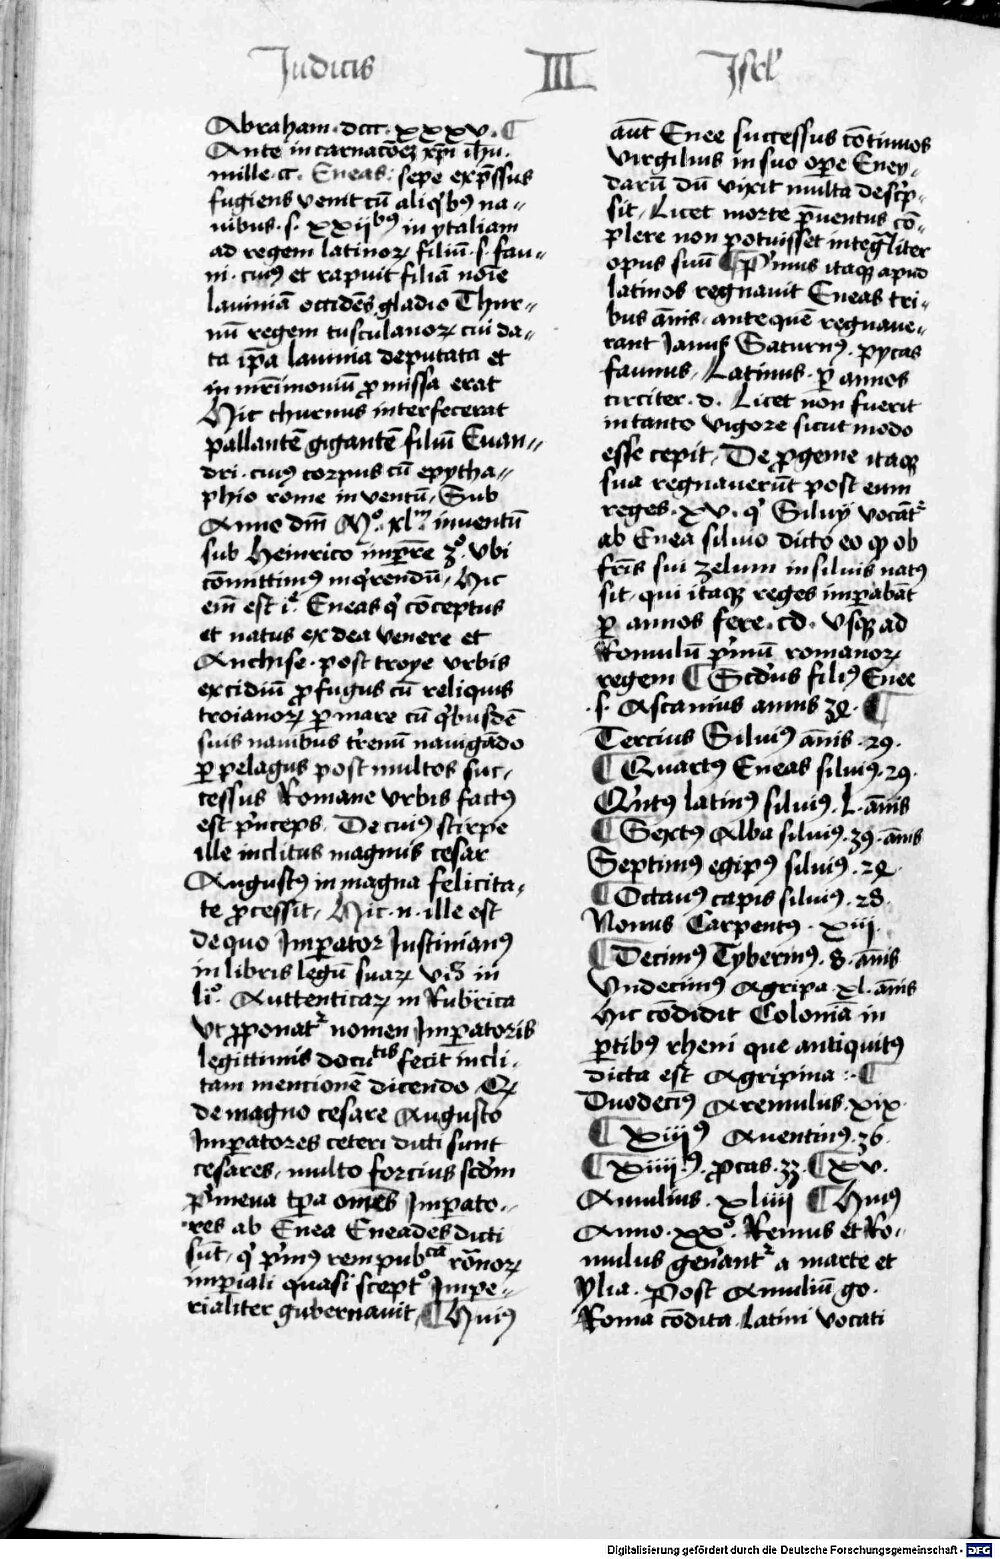 Iudicis III Isrl'
Abraham · dccc · xxxv · ¶
Ante incarnacōeꝫ xp̄i ih̄u ·
mille · cc · Eneas : sepe exp̄ssus
fugiens venit cū aliq'bꝰ na〃
uibus · s · xxijbꝰ in ytaliam
ad regem latinoꝝ filiū · s · fau〃
ni · cuiꝰ et rapuit filiā noīe
lauiniā occidēs gladio Thur〃
nū regem tusculanoꝝ cui da〃
ta ip̄a lauinia deputata et
in mr̄imoniū ꝓmissa erat
Hic thurnus interfecerat
pallantē gigantē filiū Euan〃
dri · cuiꝰ corpus cū epytha〃
phio rome inventū / Sub
Anno dm̄ Mº · xlm inuentū
sub Heinrico imꝑre 3º · vbi
cōmittimꝰ inq'rendū / Hic
em̄ est i Eneas q' cōceptus
et natus ex dea venere et
Anchise · post troye vrbis
excidiū ꝓfugus cū reliquis
troianoꝝ ꝑ mare cū q'busdē
suis nauibus t'renū nauigādo
ꝑ pelagus post multos suc〃
cessus Romane vrbis factꝰ
est p'nceps · De cuiꝰ stirpe
ille inclitus magnus cesar
Augustꝰ in magna felicita〃
te ꝓcessit / Hic · n · ille est
de quo Imꝑator Iustinianꝰ
in libris legū suaꝝ vi3 in
liº · Auttenticaꝝ in Rubrica
vt p̄ponatr nomen Imꝑatoris
legittimis docutis fecit incli〃
tam mencionē dicendo Qꝝ
de magno cesare Augusto
Imꝑatores ceteri dicti sunt
cesares / multo forcius scdm
p'meua tꝑa om̄es Imꝑato〃
res ab Enea Eneades dicti
sūt / q' p'mꝰ rem pubcā rōnoꝝ
imꝑiali quasi sceptº Impe〃
rialiter gubernauit / ¶ Huiꝰ
aūt Enee successus cōtinuos
Virgilius in suo oꝑe Eney〃
darū dū vixit multa descp̄〃
sit / Licet morte p̄uentus cō〃
plere non potuisset integraliter
opus suū ¶ P'mus itaqꝫ apud
latinos regnauit Eneas tri〃
bus ānis · ante quē regnaue〃
rant Ianuſ Saturnꝰ · pycas
faunus / Latinus · ꝑ annos
circiter · d · Licet non fuerit
in tanto vigore sicut modo
esse cepit / De ꝓgenie itaqꝫ
sua regnauerūt post eum
reges · xv · q' Siluij vocātr
ab Enea siluio dicto eo qꝫ ob
fr̄is sui zelum in siluis natꝰ
sit · qui itaqꝫ reges imꝑabāt
ꝑ annos fere · cd · vsqꝫ ad
Romulū p'mū romanoꝝ
regem ¶ Scd'us filiꝰ Enee
· s · Ascanius annis 38 · ¶
Tercius Siluiꝰ ānis · 29 ·
¶ Quartꝰ Eneas siluiꝰ · 29 ·
Q'ntꝰ latinꝰ siluiꝰ · L · ānis
¶ Sextꝰ Alba siluiꝰ · 39 · ānis
Septimꝰ egipꝰ siluiꝰ · 28 ·
¶ Octauꝰ capis siluiꝰ · 28 ·
Nonus Carpentꝰ · xiij ·
¶ Decimꝰ Tyberinꝰ · 8 · ānis
Vndecimꝰ Agripa · xl · ānis
hic cōdidit Coloniā in
ꝑtibꝰ rheni que antiquitꝰ
dicta est Agripina : · ¶
Duodeciꝰ Aremulus · xix ·
¶ xiijꝰ Auentinꝰ · 36 ·
¶ xiiijꝰ · ꝓcas · 33 · ¶ xv ·
Amulius · xliiij ¶ Huiꝰ
Anno · xxº · Remus et Ro〃
mulus gen'antr a marte et
ylia · Post Amuliū go ·
Roma cōdita · Latini vocati
Digitalisierung gefördert durch die Deutsche Forschungsgemeinschaft - DFG